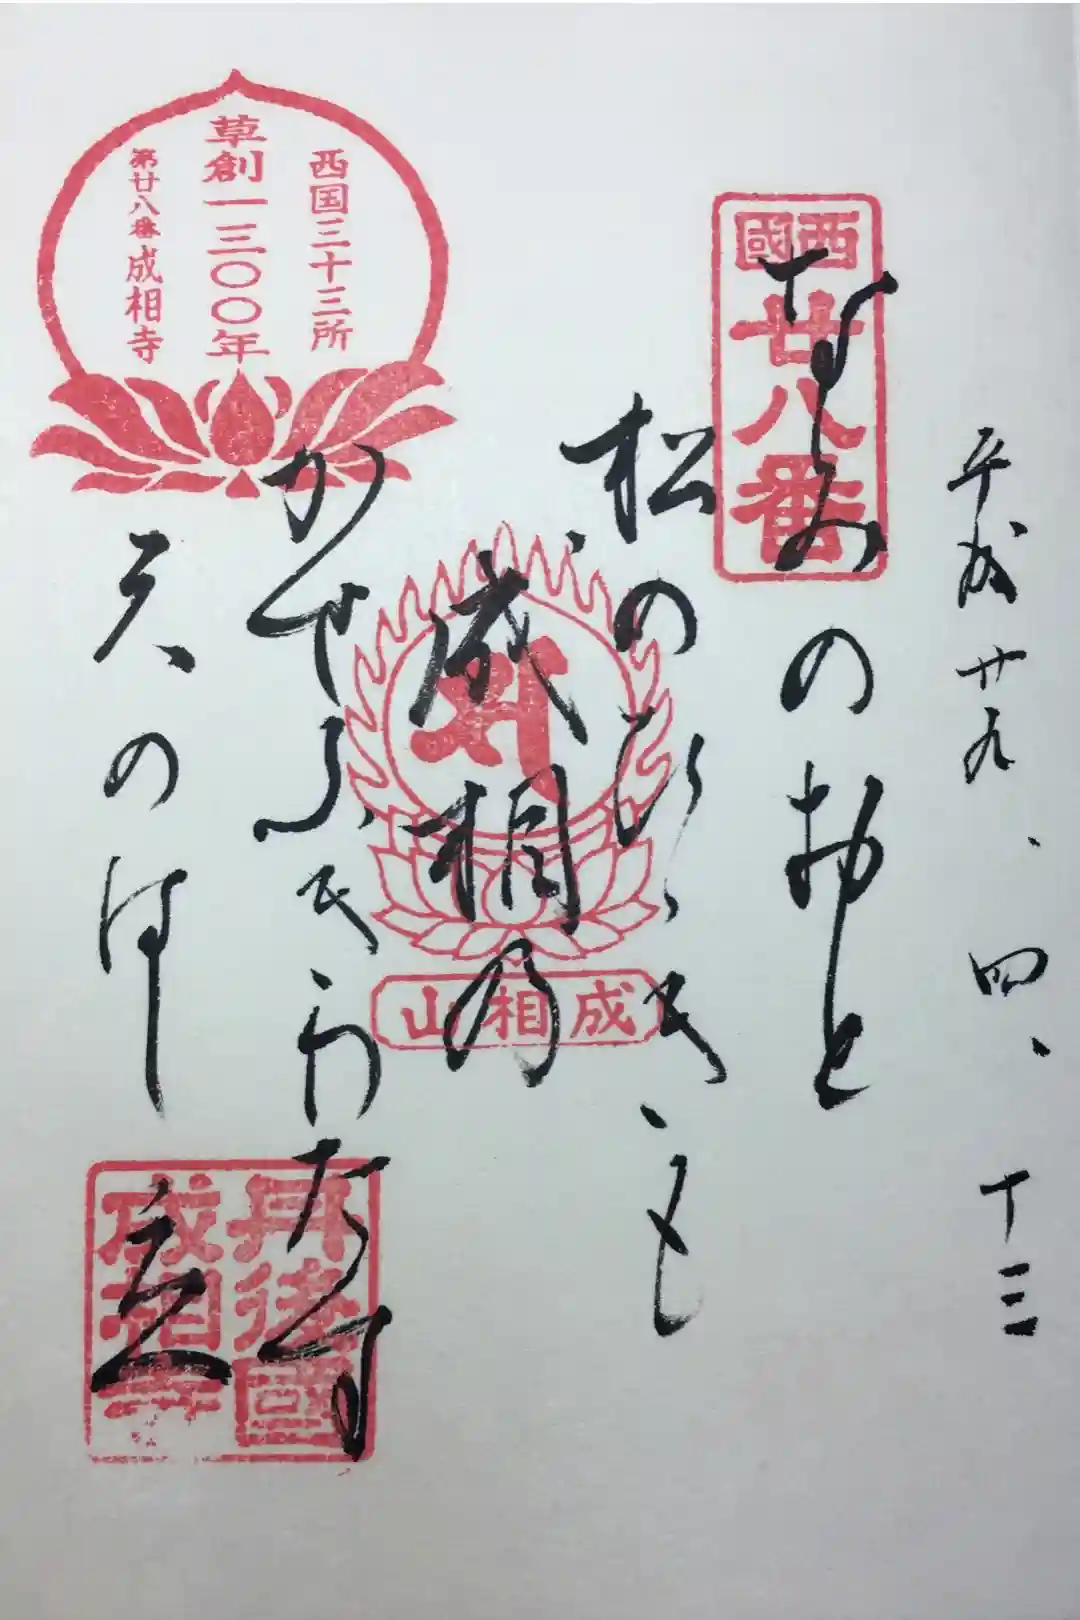 平成廿九、四、十三
西國
廿八番
なみのおと
松のひゞきも
成相乃
かせふきわたす
天のはし立
成相山
西国三十三所
草創一三〇〇年
第廿八番成相寺
丹後國
成相寺